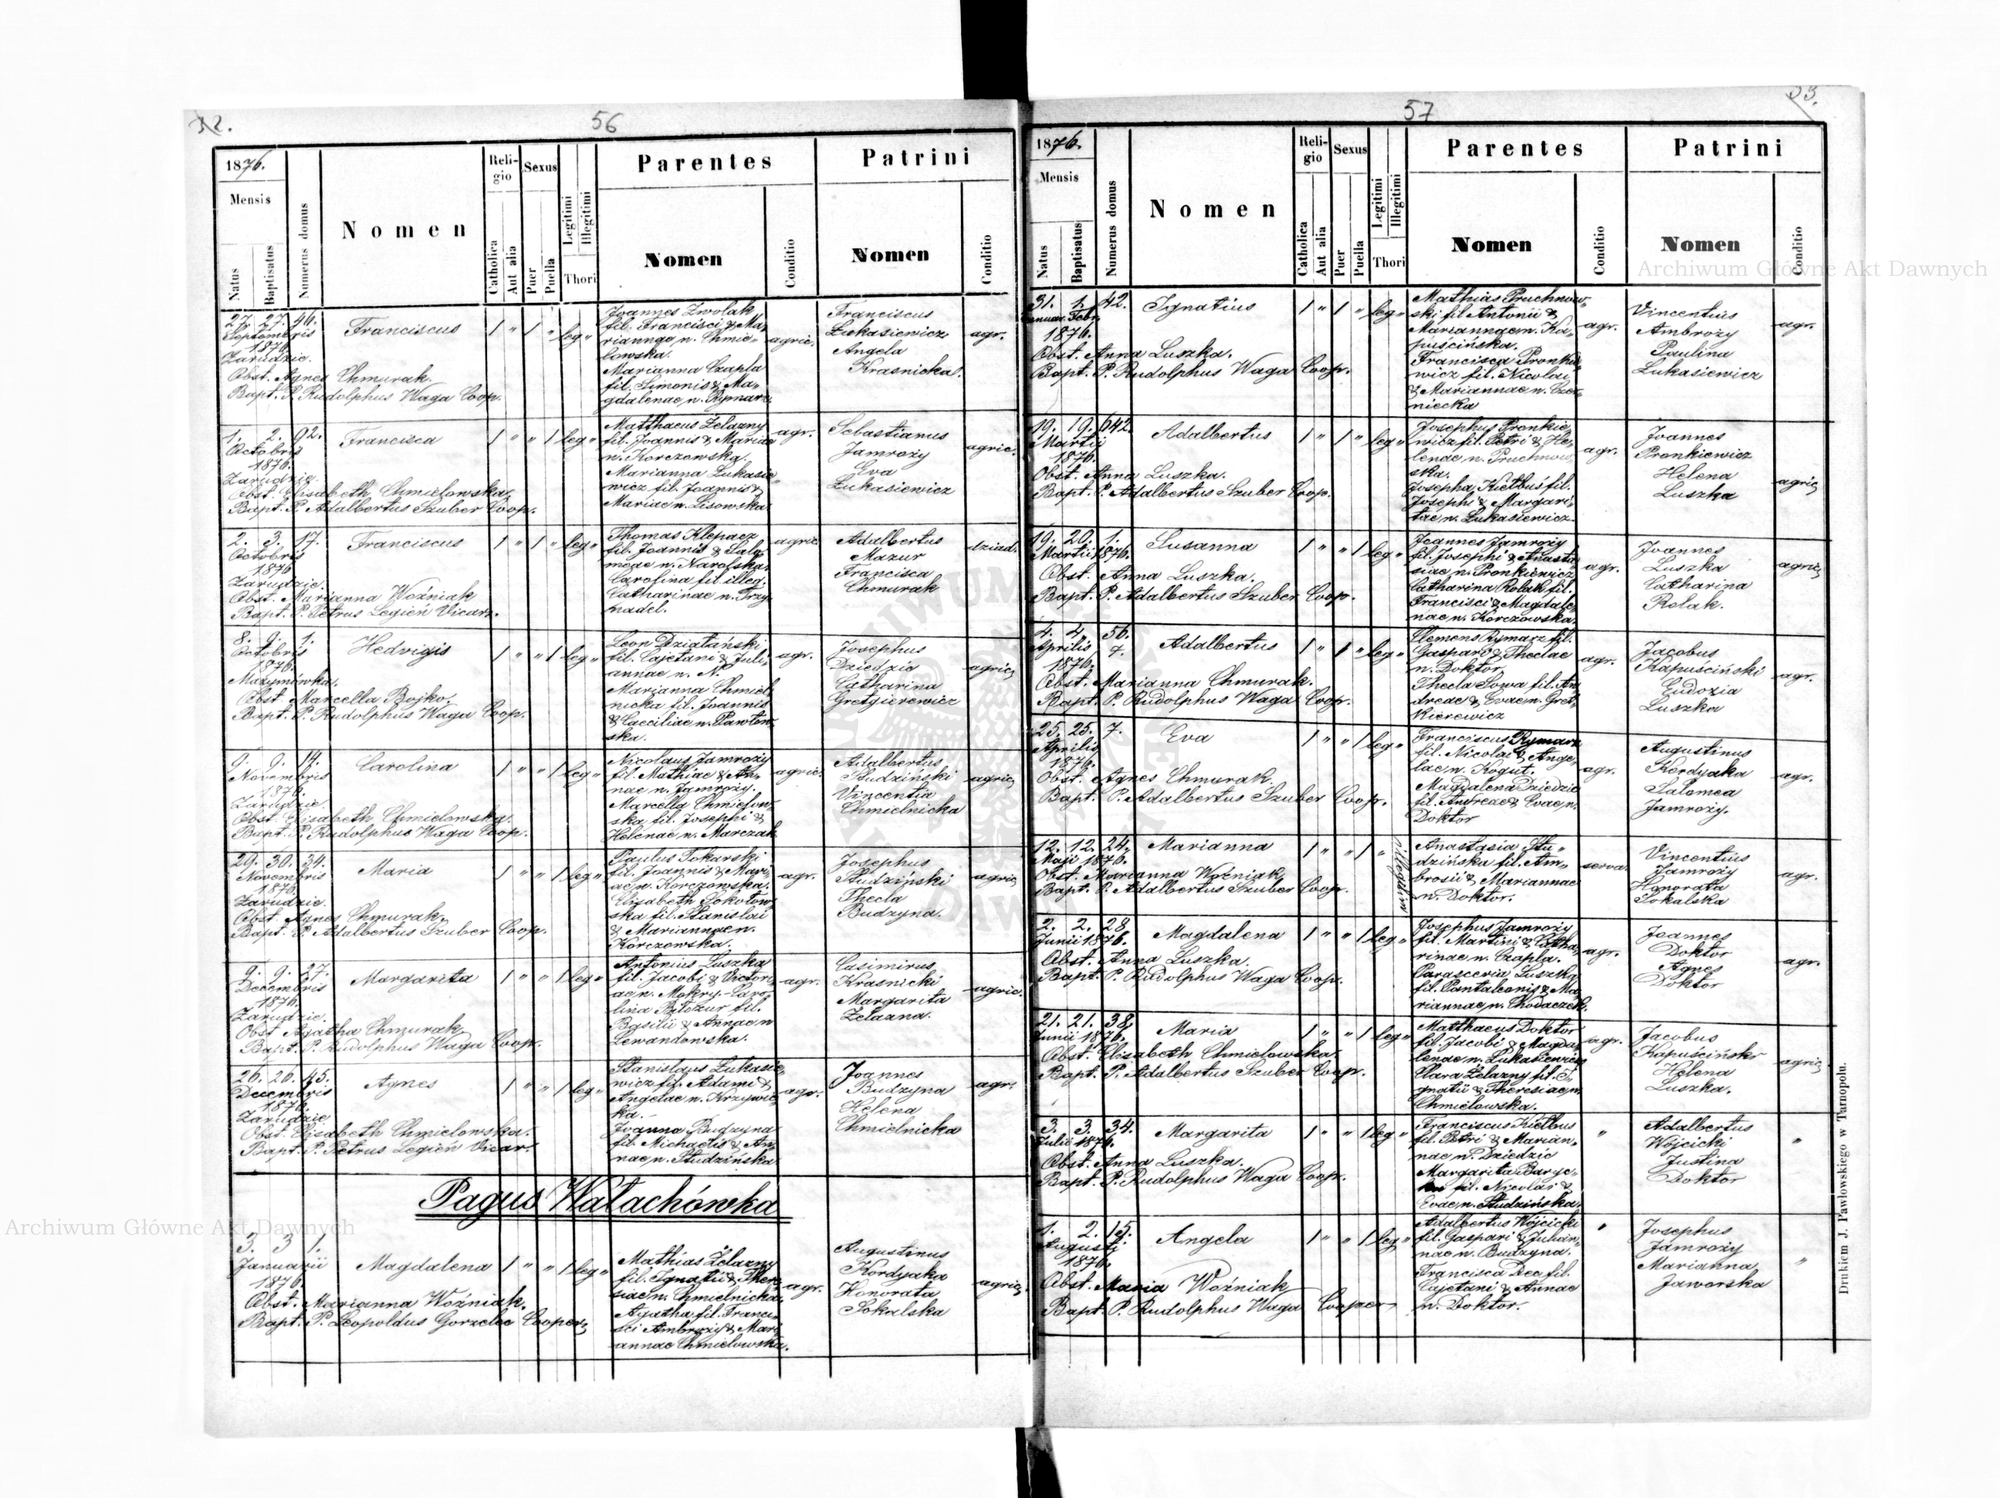 32.
56
1876.
Mensis
Natus
Baptisatus
Numerus domus
Nomen
Religio
Catholica
Aut alia
Sexus
Puer
Puella
Legitimi
Illegitimi
Thori
Parentes
Nomen
Conditio
Patrini
Nomen
Conditio
27. 27. 46.
Septembris
1876.
Zarudzie.
Obst. Agnes Chmurak.
Bapt. P. Rudolphus Waga Coop.
Franciscus
leg.
Joannes Zwolak
fil. Francisci & Ma-
riannae n. Chmie-
lowska.
Marianna Czapla
fil. Simonis & Ma-
gdalenae n. Rymarz
agric.
Franciscus
Łukasiewicz
Angela
Krasnicka.
agr.
1. 2. 92.
Octobris
1876.
Zarudzie.
Obst. Elisabeth Chmielowska.
Bapt. P. Adalbertus Szuber Coop.
Francisca
leg.
Matthaeus Żelazny
fil. Joannis & Mariae
n. Korczowska.
Marianna Łukasie-
wicz fil. Joannis &
Mariae n. Lisowska.
agr.
Sebastianus
Jamroży
Eva
Łukasiewicz
agric.
2. 3. 17.
Octobris
1876
Zarudzie.
Obst. Marianna Woźniak
Bapt. P. Petrus Legień Vicar.
Franciscus
leg.
Thomas Klepacz
fil. Joannis & Salo-
meae n. Narolska.
Carolina fil. illeg.
Catharinae n. Trzy-
nadel.
agric.
Adalbertus
Mazur
Francisca
Chmurak
dziad.
8. 9. 1.
Octobris
1876.
Maxymówka.
Obst. Marcella Bojko.
Bapt. P. Rudolphus Waga Coop.
Hedvigis
leg.
Leon Działański
fil. Cajetani & Juli-
annae n. N.
Marianna Chmiel-
nicka fil. Joannis
& Caeciliae n. Pawłow-
ska.
agr.
Josephus
Dziedzic
Catharina
Gretgierewicz
agric.
9. 9. 14.
Novembris
1876.
Zarudzie.
Obst. Elisabeth Chmielowska.
Bapt. P. Rudolphus Waga Coop.
Carolina
leg.
Nicolaus Jamroży
fil. Mathiae & An-
nae n. Jamroży.
Marcella Chmielow-
ska fil. Josephi &
Helenae n. Marczak
agric.
Adalbertus
Budziński
Vincentia
Chmielnicka
agric.
29. 30. 34.
Novembris
1876.
Zarudzie.
Obst. Agnes Chmurak.
Bapt. P. Adalbertus Szuber Coop.
Maria
leg.
Paulus Tokarski
fil. Joannis & Mari-
ae n. Korczowska.
Elisabeth Sokołow-
ska fil. Stanislai
& Mariannae n.
Korczowska.
agr.
Josephus
Studziński
Thecla
Budzyna.
agric.
9. 9. 27.
Decembris
1876.
Zarudzie.
Obst. Agatha Chmurak.
Bapt. P. Rudolphus Waga Coop.
Margarita
leg.
Antonius Luszka
fil. Jacobi & Victori-
ae n. Mokry. Caro-
lina Bełozur fil.
Basilii & Annae n.
Lewandowska.
agr.
Casimirus
Krasnicki
Margarita
Żelazna.
agric.
26. 26. 45.
Decembris
1876.
Zarudzie
Obst. Elisabeth Chmielowska.
Bapt. P. Petrus Legień Vicar.
Agnes
leg.
Stanislaus Łukasie-
wicz fil. Adami &
Angelae n. Krzywic-
ka.
Joanna Budzyna
fil. Michaelis & An-
nae n. Studzińska
agr.
Joannes
Budzyna
Helena
Chmielnicka
agr.
Pagus Wałachówka
3. 3 1.
Januarii
1876.
Obst. Marianna Woźniak.
Bapt. P. Leopoldus Gorzelec Cooper.
Magdalena
leg.
Mathias Żelazny
fil. Ignatii & Ther-
siae n. Chmielnicka
Agatha fil. Franci-
sci Ambroży & Mari-
annae Chmielowska.
agr.
Augustinus
Kordyaka
Honorata
Sokalska
agric.
57
33.
1876.
Mensis
Natus
Baptisatus
Numerus domus
Nomen
Religio
Catholica
Aut alia
Sexus
Puer
Puella
Legitimi
Illegitimi
Thori
Parentes
Nomen
Conditio
Patrini
Nomen
Conditio
31. 1. 42.
Januar. Febr.
1876.
Obst. Anna Luszka.
Bapt. P. Rudolphus Waga Coop.
Ignatius
leg.
Mathias Pruchnow-
ski fil. Antonii &
Mariannae n. Ka-
puścińska.
Francisca Pronkie-
wicz fil. Nicolai
& Mariannae n. Czer-
niecka
agr.
Vincentius
Ambroży
Paulina
Łukasiewicz
agr.
19. 19. 42.
Martii
1876.
Obst. Anna Luszka.
Bapt. P. Adalbertus Szuber Coop.
Adalbertus
leg.
Josephus Pronkie-
wicz fil. Petri & He-
lenae n. Pruchnow-
ska.
Josepha Kiełbus fil.
Josephi & Margari-
tae n. Łukasiewicz.
agr.
Joannes
Pronkiewicz
Helena
Luszka
agric.
19. 20. 1.
Martii 1876.
Obst. Anna Luszka.
Bapt. P. Adalbertus Szuber Coop.
Susanna
leg.
Joannes Jamroży
fil. Josephi & Anasta-
siae n. Pronkiewicz
Catharina Rolak fil.
Francisci & Magdale-
nae n. Korczowska.
agr.
Joannes
Luszka
Catharina
Rolak.
agric.
4. 4. 56.
Aprilis 7.
1876.
Obst. Marianna Chmurak.
Bapt. P. Rudolphus Waga Coop.
Adalbertus
leg.
Clemens Rymarz fil.
Gaspari & Theclae
n. Doktor.
Thecla Sowa fil. An-
dreae & Evae n. Gret-
kierewicz
agr.
Jacobus
Kapuściński
Eudozia
Luszka
agr.
25. 25. 7.
Aprilis
1876.
Obst. Agnes Chmurak.
Bapt. P. Adalbertus Szuber Coop.
Eva
leg.
Franciscus Rymarz
fil. Nicolai & Ange-
lae n. Kogut.
Magdalena Dziedzic
fil. Andreae & Evae n.
Doktor
agr.
Augustinus
Kordyaka
Salomea
Jamroży.
agr.
12. 12. 24.
Maji 1876.
Obst. Marianna Woźniak
Bapt. P. Adalbertus Szuber Coop.
Marianna
Anastasia Stu-
dzińska fil. Am-
brosii & Mariannae
n. Doktor.
serva.
Vincentius
Jamroży
Honorata
Sokalska
agr.
2. 2. 28
Junii 1876.
Obst. Anna Luszka.
Bapt. P. Rudolphus Waga Coop.
Magdalena
leg.
Josephus Jamroży
fil. Martini & Catha-
rinae n. Czapla.
Parasceria Luszka
fil. Pantaleonis & Ma-
riannae n. Chodaczek.
agr.
Joannes
Doktor
Agnes
Doktor
agr.
21. 21. 38.
Junii 1876.
Obst. Elisabeth Chmielowska.
Bapt. P. Adalbertus Szuber Coop.
Maria
leg.
Matthaeus Doktor
fil. Jacobi & Magda-
lenae n. Łukasiewicz
Clara Żelazny fil. I-
gnatii & Theresiae n.
Chmielowska.
agr.
Jacobus
Kapuściński
Helena
Luszka.
agric.
3. 3. 34.
Julii 1876.
Obst. Anna Luszka.
Bapt. P. Rudolphus Waga Coop.
Margarita
leg.
Franciscus Kiełbus
fil. Petri & Marian-
nae n. Dziedzic
Margarita Baryc-
fil. Nicolai &
Evae n. Studzińska
"
Adalbertus
Wójcicki
Justina
Doktor
"
1. 2. 15.
Augusti
1876.
Obst. Maria Woźniak
Bapt. P. Rudolphus Waga Cooper
Angela
leg.
Adalbertus Wójcicki
fil. Gaspari & Julian-
nae n. Budzyna.
Francisca Dec fil.
Cajetani & Annae
n. Doktor.
"
Josephus
Jamroży
Marianna
Jaworska
"
Drukiem J. Pawłowskiego w Tarnopolu.
Archiwum Główne Akt Dawnych
Archiwum Główne Akt Dawnych